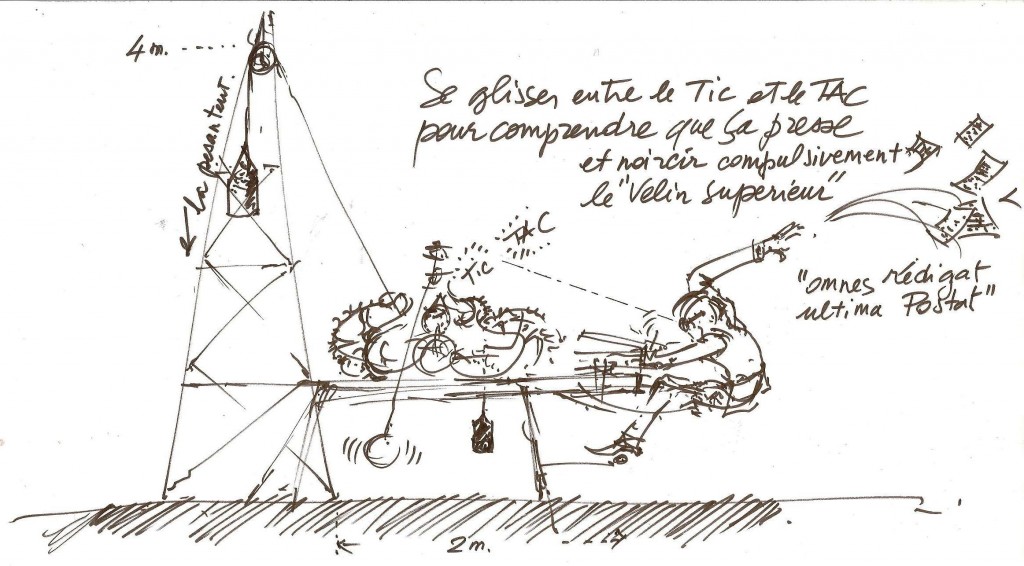 4 m.
la pesanteur.
Se glisser entre le Tic et le TAC
pour comprendre que ça presse
et noircir compulsivement
le "Velin superieur"
TAC
Tic
"omnes rédigat
ultima Postat"
2 m.